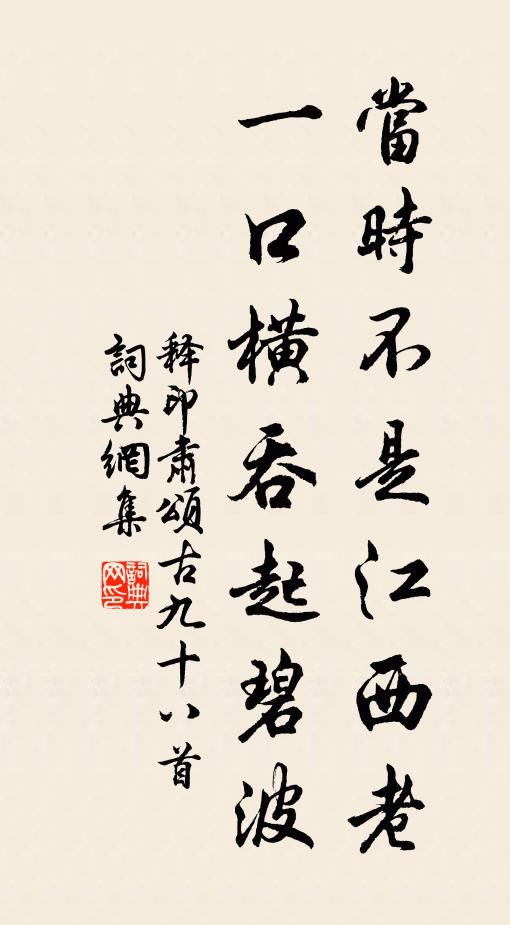 當時不是江西老
一口橫吞起碧波
释印肅頌古九十八首
詞典網集
詞典网印